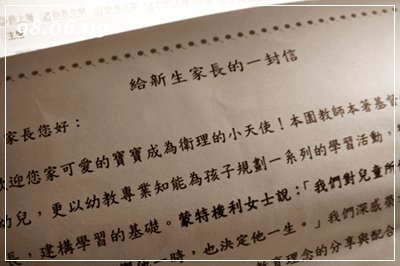 98.06.
給新生家長的一封信
家長您好：
歡迎您家可愛的寶寶成為衛理的小天使！本園教師本著基督
幼兒，更以幼教專業知能為孩子規劃一系列的學習活動，
長，建構學習的基礎。蒙特梭利女士說：「我們對兒童所
他一時，也決定他一生。」我們深感榮
教育理念的分享與配合